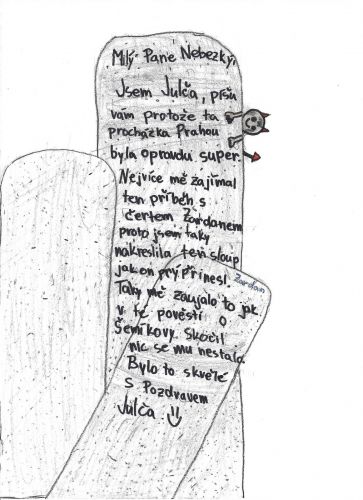 Milý Pane Nebezký,
Jsem Julča, píšu
vám protože ta
procházka Prahou
byla opravdu super.
Nejvíce mě zajímal
ten příběh s
čertem Zardanem
proto jsem taky
nakreslila ten sloup
jak on prý přinesl
Zardan
Taky mě zaujalo to jak
v té pověsti o
Šemíkovy. Skočil
nic se mu nestalo
Bylo to skvělé
S Pozdravem
Julča